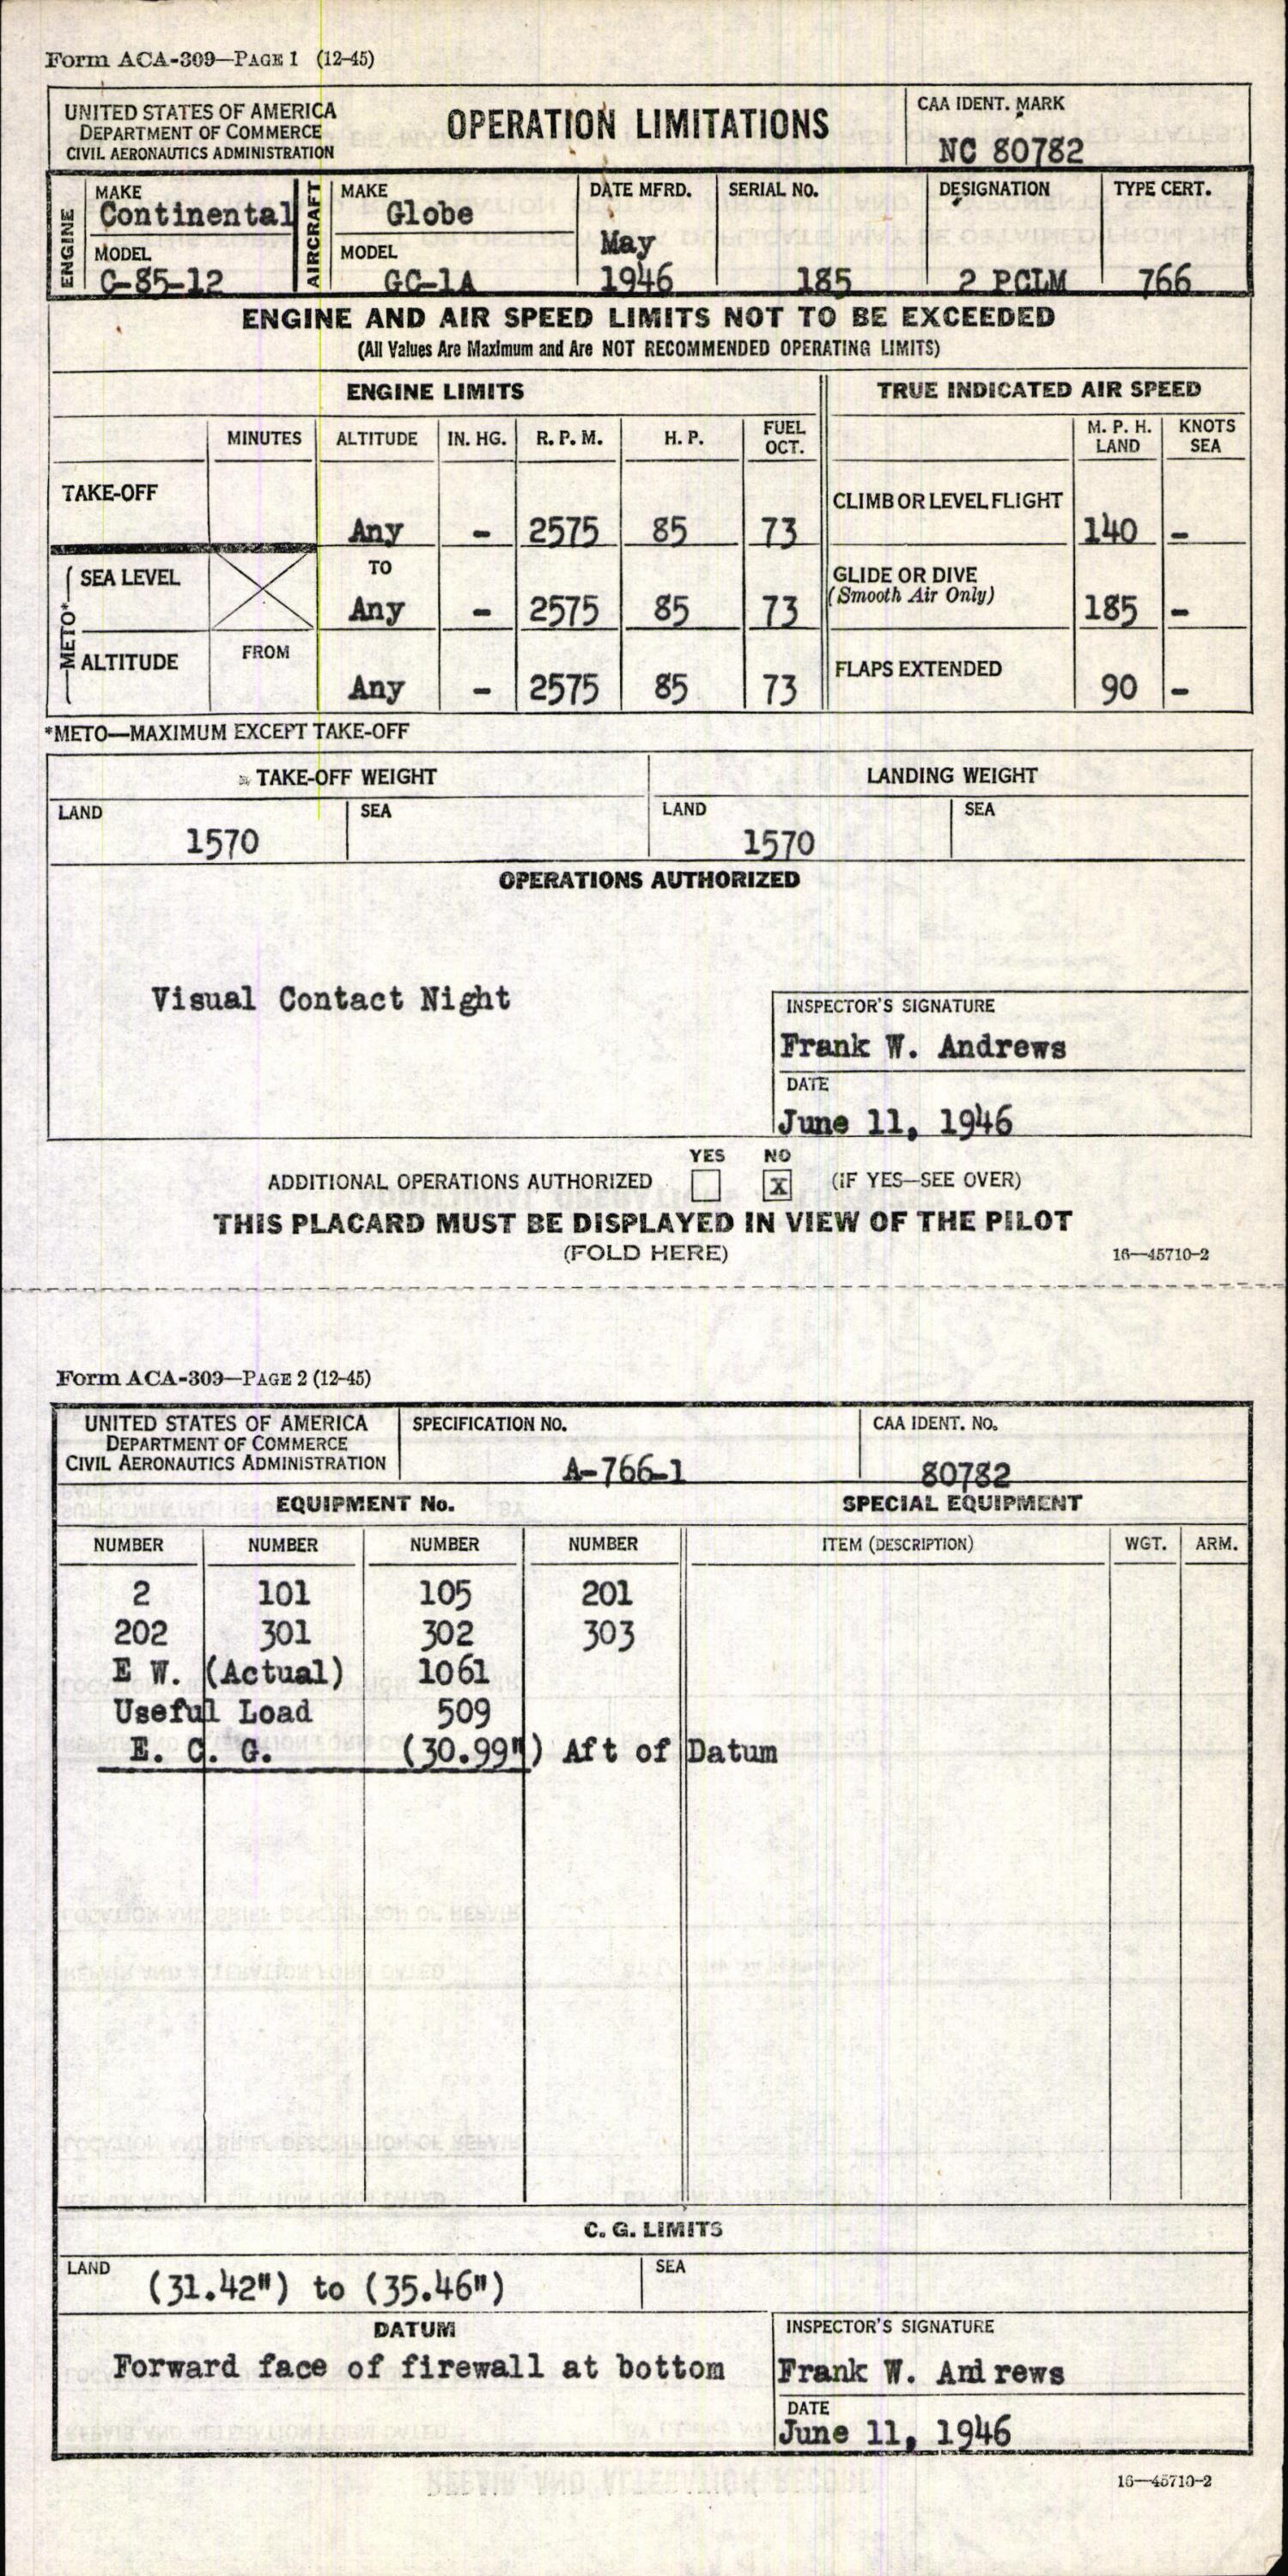 Form ACA-309—PAGE 1 (12-45)
UNITED STATES OF AMERICA
DEPARTMENT OF COMMERCE
CIVIL AERONAUTICS ADMINISTRATION
OPERATION LIMITATIONS
CAA IDENT. MARK
NC 80782
ENGINE
MAKE
Continental
MODEL
C-85-12
AIRCRAFT
MAKE
Globe
MODEL
GC-1A
DATE MFRD.
May
1946
SERIAL NO.
185
DESIGNATION
2 PCLM
TYPE CERT.
766
ENGINE AND AIR SPEED LIMITS NOT TO BE EXCEEDED
(All Values Are Maximum and Are NOT RECOMMENDED OPERATING LIMITS)
ENGINE LIMITS
TRUE INDICATED AIR SPEED
MINUTES ALTITUDE IN. HG. R. P. M. H. P. FUEL OCT.
M. P. H. LAND KNOTS SEA
TAKE-OFF Any - 2575 85 73
CLIMB OR LEVEL FLIGHT 140 -
METO*
SEA LEVEL TO Any - 2575 85 73
GLIDE OR DIVE (Smooth Air Only) 185 -
ALTITUDE FROM Any - 2575 85 73
FLAPS EXTENDED 90 -
*METO—MAXIMUM EXCEPT TAKE-OFF
TAKE-OFF WEIGHT LANDING WEIGHT
LAND SEA LAND SEA
1570 1570
OPERATIONS AUTHORIZED
Visual Contact Night
INSPECTOR'S SIGNATURE
Frank W. Andrews
DATE
June 11, 1946
YES NO
ADDITIONAL OPERATIONS AUTHORIZED X (IF YES—SEE OVER)
THIS PLACARD MUST BE DISPLAYED IN VIEW OF THE PILOT
(FOLD HERE) 16—45710-2
Form ACA-309—PAGE 2 (12-45)
UNITED STATES OF AMERICA
DEPARTMENT OF COMMERCE
CIVIL AERONAUTICS ADMINISTRATION
SPECIFICATION NO.
A-766-1
CAA IDENT. NO.
80782
EQUIPMENT No. SPECIAL EQUIPMENT
NUMBER NUMBER NUMBER NUMBER ITEM (DESCRIPTION) WGT. ARM.
2 101 105 201
202 301 302 303
E W. (Actual) 1061
Useful Load 509
E. C. G. (30.99") Aft of Datum
C. G. LIMITS
LAND SEA
(31.42") to (35.46")
DATUM
Forward face of firewall at bottom
INSPECTOR'S SIGNATURE
Frank W. Andrews
DATE
June 11, 1946
16—45710-2